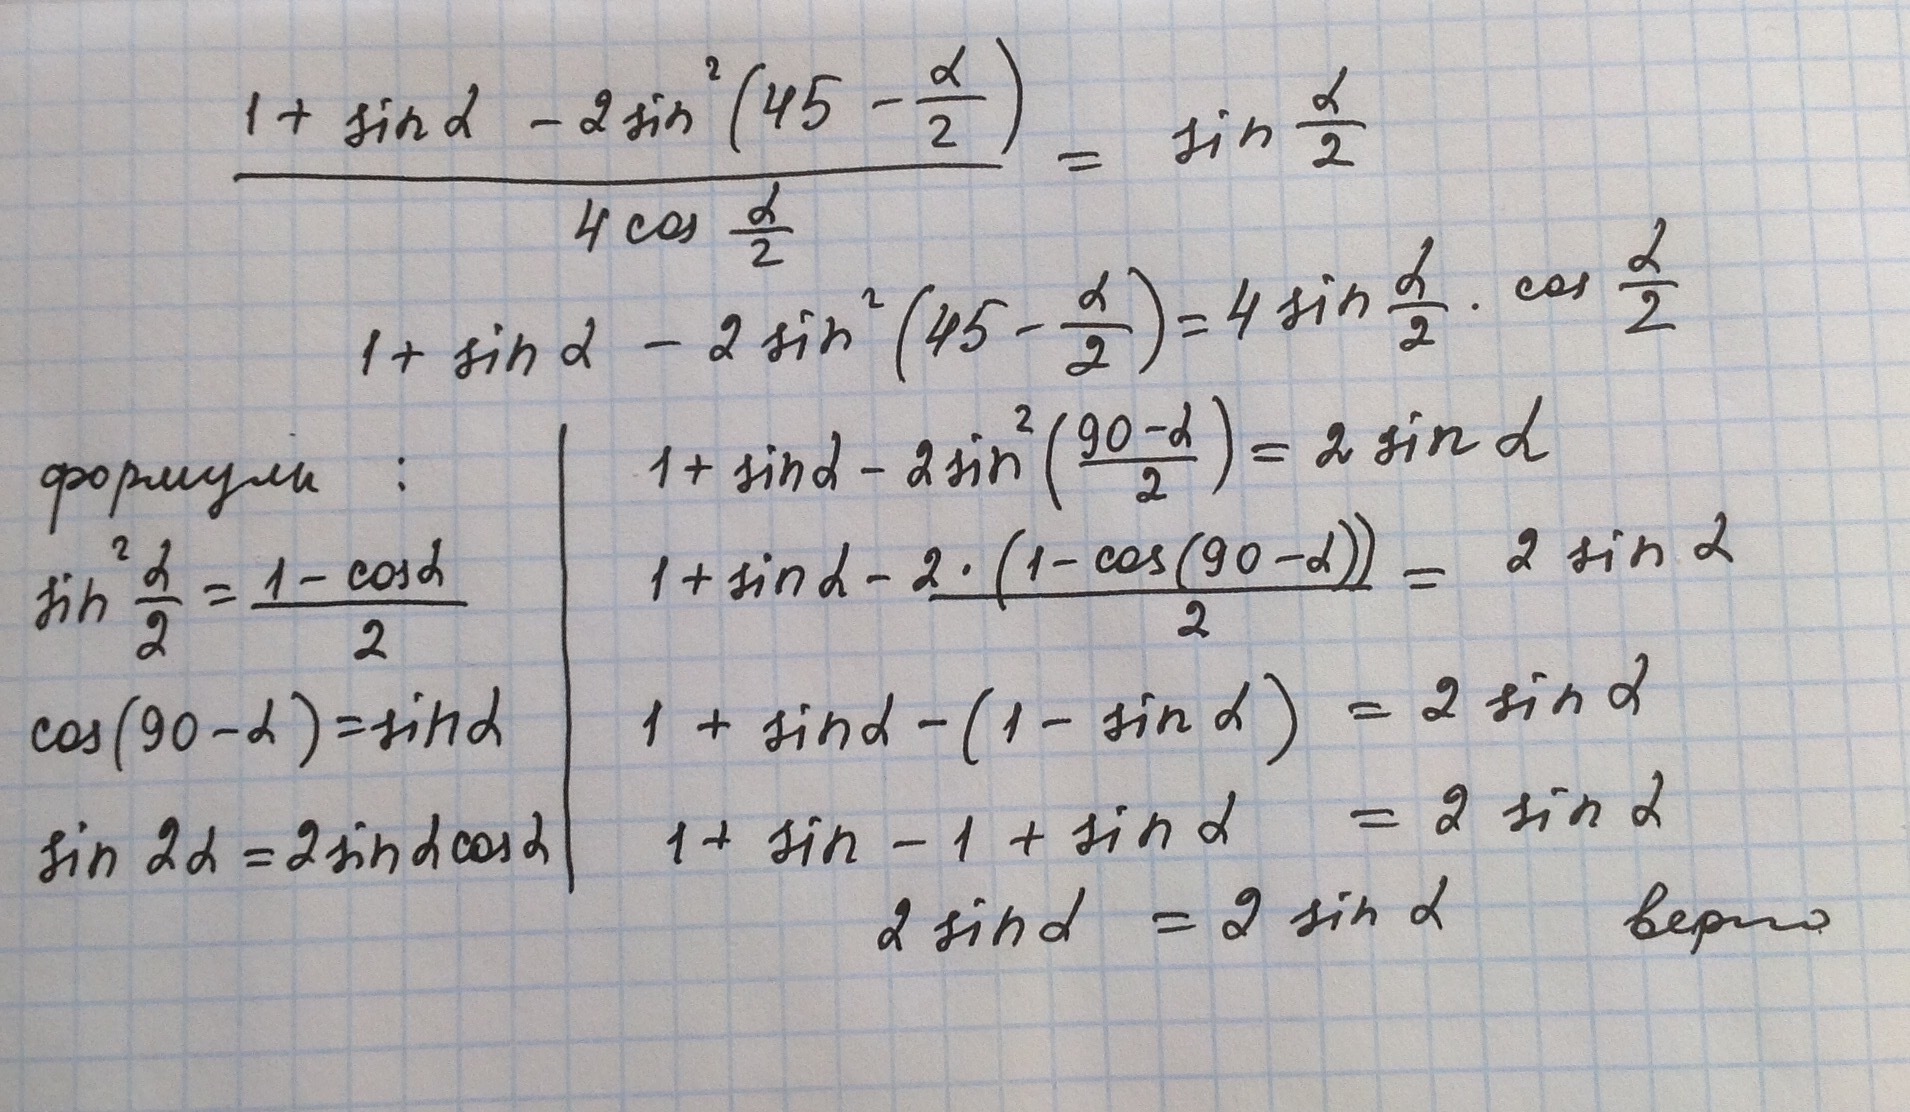 (1 + sin α - 2 sin² (45 - α/2)) / (4 cos α/2) = sin α/2
1 + sin α - 2 sin² (45 - α/2) = 4 sin α/2 · cos α/2
формулы :
sin² α/2 = (1 - cos α)/2
cos(90 - α) = sin α
sin 2α = 2 sin α cos α
1 + sin α - 2 sin² ((90 - α)/2) = 2 sin α
1 + sin α - (2 · (1 - cos(90 - α)))/2 = 2 sin α
1 + sin α - (1 - sin α) = 2 sin α
1 + sin - 1 + sin α = 2 sin α
2 sin α = 2 sin α верно